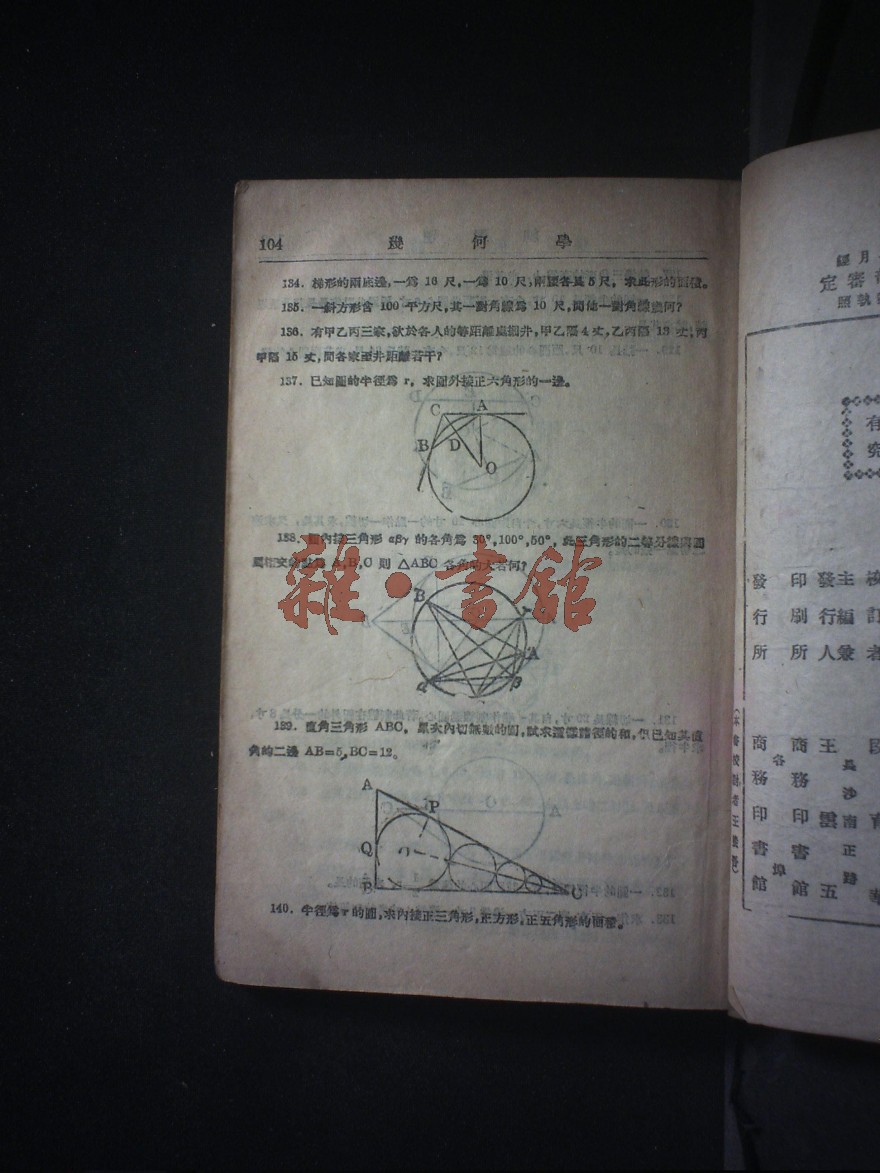 104 幾何學
134. 梯形的兩底邊,一爲 16 尺,一爲 10 尺,兩腰各長 5 尺, 求此形的面積。
135. 一斜方形含 100 平方尺,其一對角線爲 10 尺,問他一對角線幾何?
136. 有甲乙丙三家,欲於各人的等距離處掘井,甲乙隔 4 丈,乙丙隔 13 丈,丙
甲隔 15 丈,問各家至井距離若干?
137. 已知圓的半徑爲 r, 求圓外接正六角形的一邊。
C A
B D
O
138. 圓內接三角形 αβγ 的各角爲 30°,100°,50°, 此三角形的二等分線與圓
周相交的點爲 A,B,C 則 △ABC 各角的大若何?
B γ
A
α β
雜·書館
139. 直角三角形 ABC, 累次內切無數的圓,試求這些諸徑的和,但已知其直
角的二邊 AB=5, BC=12。
A
P
Q O
B C
140. 半徑爲 r 的圓,求內接正三角形,正方形,正五角形的面積。
審定
執照
發行所
印刷所
發行人
主編兼
校訂者
商務印書館
各埠
商務印書館
王雲五
長沙南正路